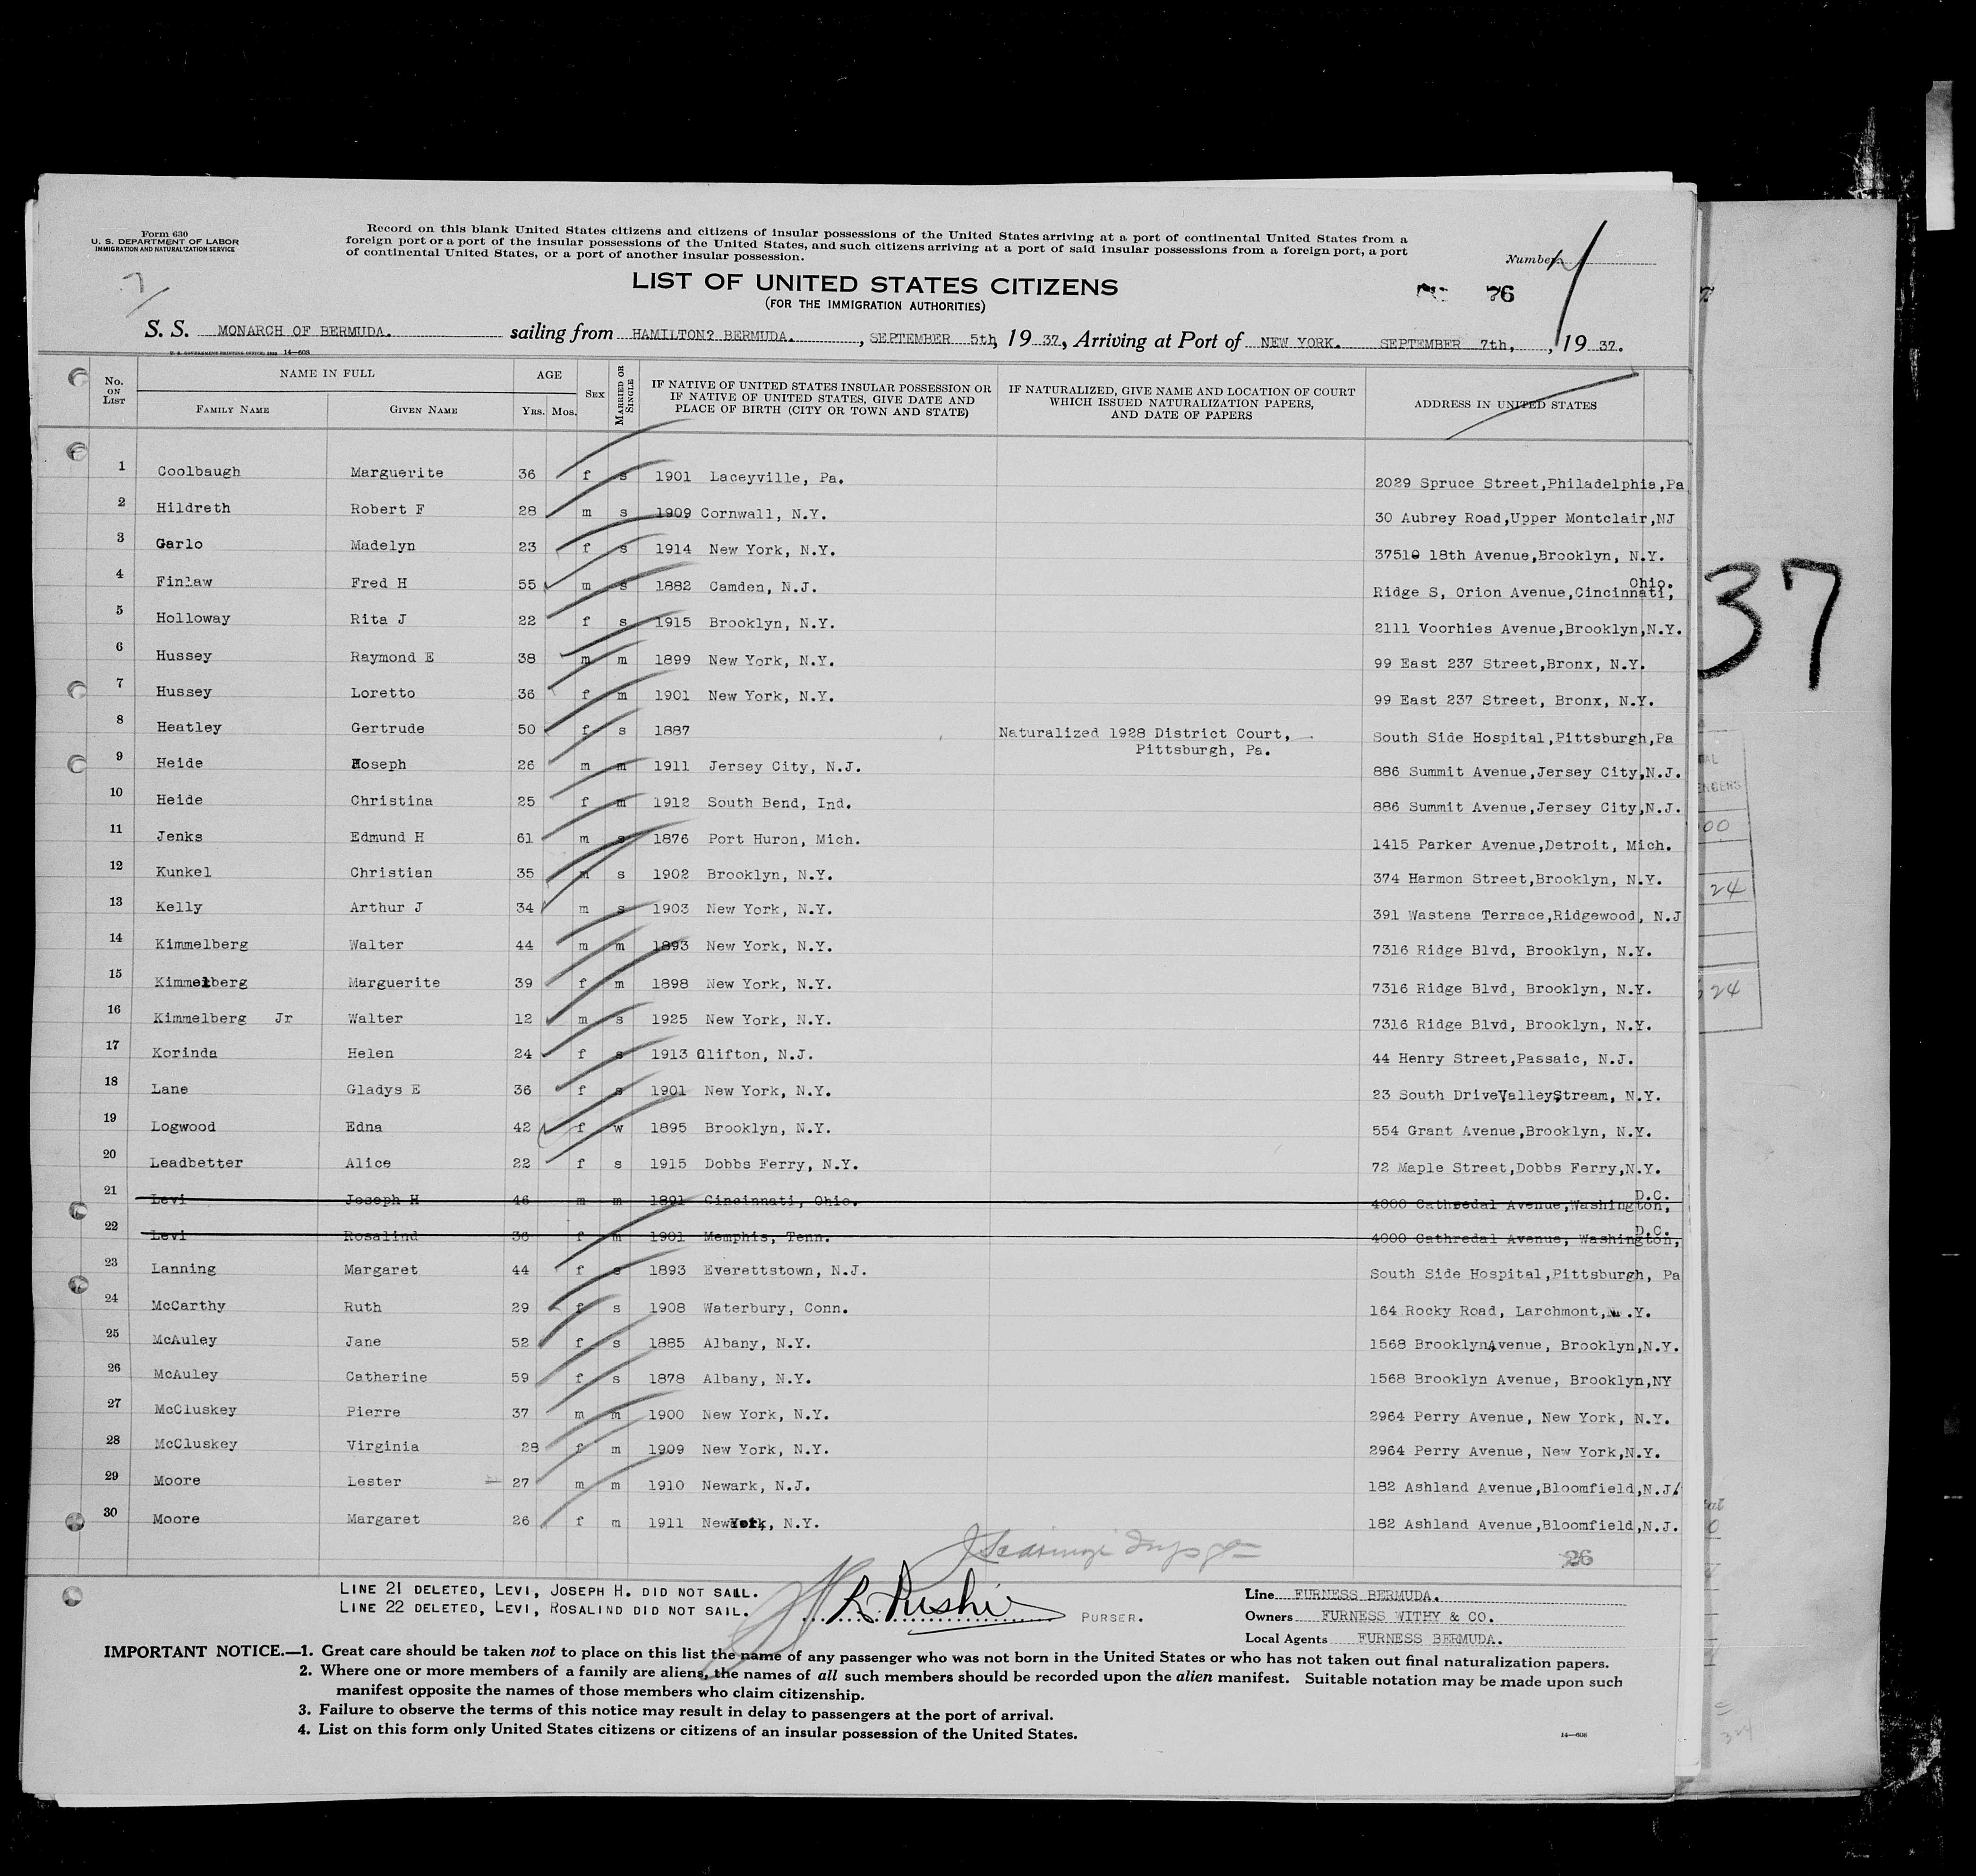 Form 630
U. S. DEPARTMENT OF LABOR
IMMIGRATION AND NATURALIZATION SERVICE
Record on this blank United States citizens and citizens of insular possessions of the United States arriving at a port of continental United States from a
foreign port or a port of the insular possessions of the United States, and such citizens arriving at a port of said insular possessions from a foreign port, a port
of continental United States, or a port of another insular possession.
Number
LIST OF UNITED STATES CITIZENS
(FOR THE IMMIGRATION AUTHORITIES)
76
S. S. MONARCH OF BERMUDA. sailing from HAMILTON? BERMUDA. , SEPTEMBER 5th, 19 37, Arriving at Port of NEW YORK. SEPTEMBER 7th, , 19 37.
U. S. GOVERNMENT PRINTING OFFICE: 14—608
No. ON LIST NAME IN FULL AGE SEX MARRIED OR SINGLE IF NATIVE OF UNITED STATES INSULAR POSSESSION OR IF NATIVE OF UNITED STATES, GIVE DATE AND PLACE OF BIRTH (CITY OR TOWN AND STATE) IF NATURALIZED, GIVE NAME AND LOCATION OF COURT WHICH ISSUED NATURALIZATION PAPERS, AND DATE OF PAPERS ADDRESS IN UNITED STATES
FAMILY NAME GIVEN NAME YRS. MOS.
1 Coolbaugh Marguerite 36 f s 1901 Laceyville, Pa. 2029 Spruce Street,Philadelphia,Pa
2 Hildreth Robert F 28 m s 1909 Cornwall, N.Y. 30 Aubrey Road,Upper Montclair,NJ
3 Garlo Madelyn 23 f s 1914 New York, N.Y. 37510 18th Avenue,Brooklyn, N.Y.
4 Finlaw Fred H 55 m s 1882 Camden, N.J. Ridge S, Orion Avenue,Cincinnati, Ohio.
5 Holloway Rita J 22 f s 1915 Brooklyn, N.Y. 2111 Voorhies Avenue,Brooklyn,N.Y.
6 Hussey Raymond E 38 m m 1899 New York, N.Y. 99 East 237 Street,Bronx, N.Y.
7 Hussey Loretto 36 f m 1901 New York, N.Y. 99 East 237 Street, Bronx, N.Y.
8 Heatley Gertrude 50 f s 1887 Naturalized 1928 District Court, Pittsburgh, Pa. South Side Hospital,Pittsburgh,Pa
9 Heide Joseph 26 m m 1911 Jersey City, N.J. 886 Summit Avenue,Jersey City,N.J.
10 Heide Christina 25 f m 1912 South Bend, Ind. 886 Summit Avenue,Jersey City,N.J.
11 Jenks Edmund H 61 m s 1876 Port Huron, Mich. 1415 Parker Avenue,Detroit, Mich.
12 Kunkel Christian 35 m s 1902 Brooklyn, N.Y. 374 Harmon Street,Brooklyn, N.Y.
13 Kelly Arthur J 34 m s 1903 New York, N.Y. 391 Wastena Terrace,Ridgewood, N.J
14 Kimmelberg Walter 44 m m 1893 New York, N.Y. 7316 Ridge Blvd, Brooklyn, N.Y.
15 Kimmelberg Marguerite 39 f m 1898 New York, N.Y. 7316 Ridge Blvd, Brooklyn, N.Y.
16 Kimmelberg Jr Walter 12 m s 1925 New York, N.Y. 7316 Ridge Blvd, Brooklyn, N.Y.
17 Korinda Helen 24 f s 1913 Clifton, N.J. 44 Henry Street,Passaic, N.J.
18 Lane Gladys E 36 f s 1901 New York, N.Y. 23 South Drive,Valley Stream, N.Y.
19 Logwood Edna 42 f w 1895 Brooklyn, N.Y. 554 Grant Avenue,Brooklyn, N.Y.
20 Leadbetter Alice 22 f s 1915 Dobbs Ferry, N.Y. 72 Maple Street,Dobbs Ferry,N.Y.
21 Levi Joseph H 46 m m 1891 Cincinnati, Ohio. 4000 Cathredal Avenue,Washington, D.C.
22 Levi Rosalind 36 f m 1901 Memphis, Tenn. 4000 Cathredal Avenue, Washington, D.C.
23 Lanning Margaret 44 f s 1893 Everettstown, N.J. South Side Hospital,Pittsburgh, Pa
24 McCarthy Ruth 29 f s 1908 Waterbury, Conn. 164 Rocky Road, Larchmont,N.Y.
25 McAuley Jane 52 f s 1885 Albany, N.Y. 1568 Brooklyn Avenue, Brooklyn,N.Y.
26 McAuley Catherine 59 f s 1878 Albany, N.Y. 1568 Brooklyn Avenue, Brooklyn,NY
27 McCluskey Pierre 37 m m 1900 New York, N.Y. 2964 Perry Avenue, New York, N.Y.
28 McCluskey Virginia 28 f m 1909 New York, N.Y. 2964 Perry Avenue, New York,N.Y.
29 Moore Lester 27 m m 1910 Newark, N.J. 182 Ashland Avenue,Bloomfield,N.J.
30 Moore Margaret 26 f m 1911 New York, N.Y. 182 Ashland Avenue,Bloomfield,N.J.
26
LINE 21 DELETED, LEVI, JOSEPH H. DID NOT SAIL.
LINE 22 DELETED, LEVI, ROSALIND DID NOT SAIL.
PURSER.
Line FURNESS BERMUDA.
Owners FURNESS WITHY & CO.
Local Agents FURNESS BERMUDA.
IMPORTANT NOTICE.—1. Great care should be taken not to place on this list the name of any passenger who was not born in the United States or who has not taken out final naturalization papers.
2. Where one or more members of a family are aliens, the names of all such members should be recorded upon the alien manifest. Suitable notation may be made upon such
manifest opposite the names of those members who claim citizenship.
3. Failure to observe the terms of this notice may result in delay to passengers at the port of arrival.
4. List on this form only United States citizens or citizens of an insular possession of the United States.
14—608
37
00
24
24
324